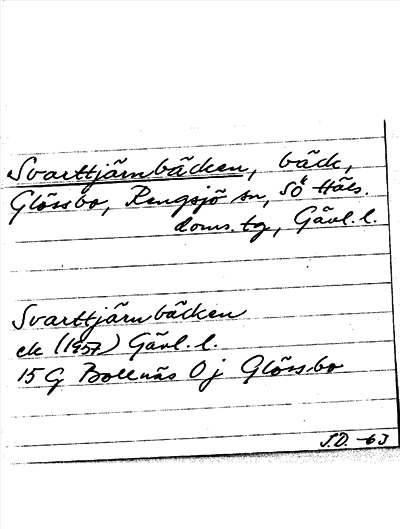 Svarttjärnbäcken, bäck,
Glössbo, Rengsjö sn, Sö Häls.
doms.tg, Gävl. l.
Svarttjärnbäcken
ek (1957) Gävl. l.
15 G Bollnäs 0 j Glössbo
S.D. -63